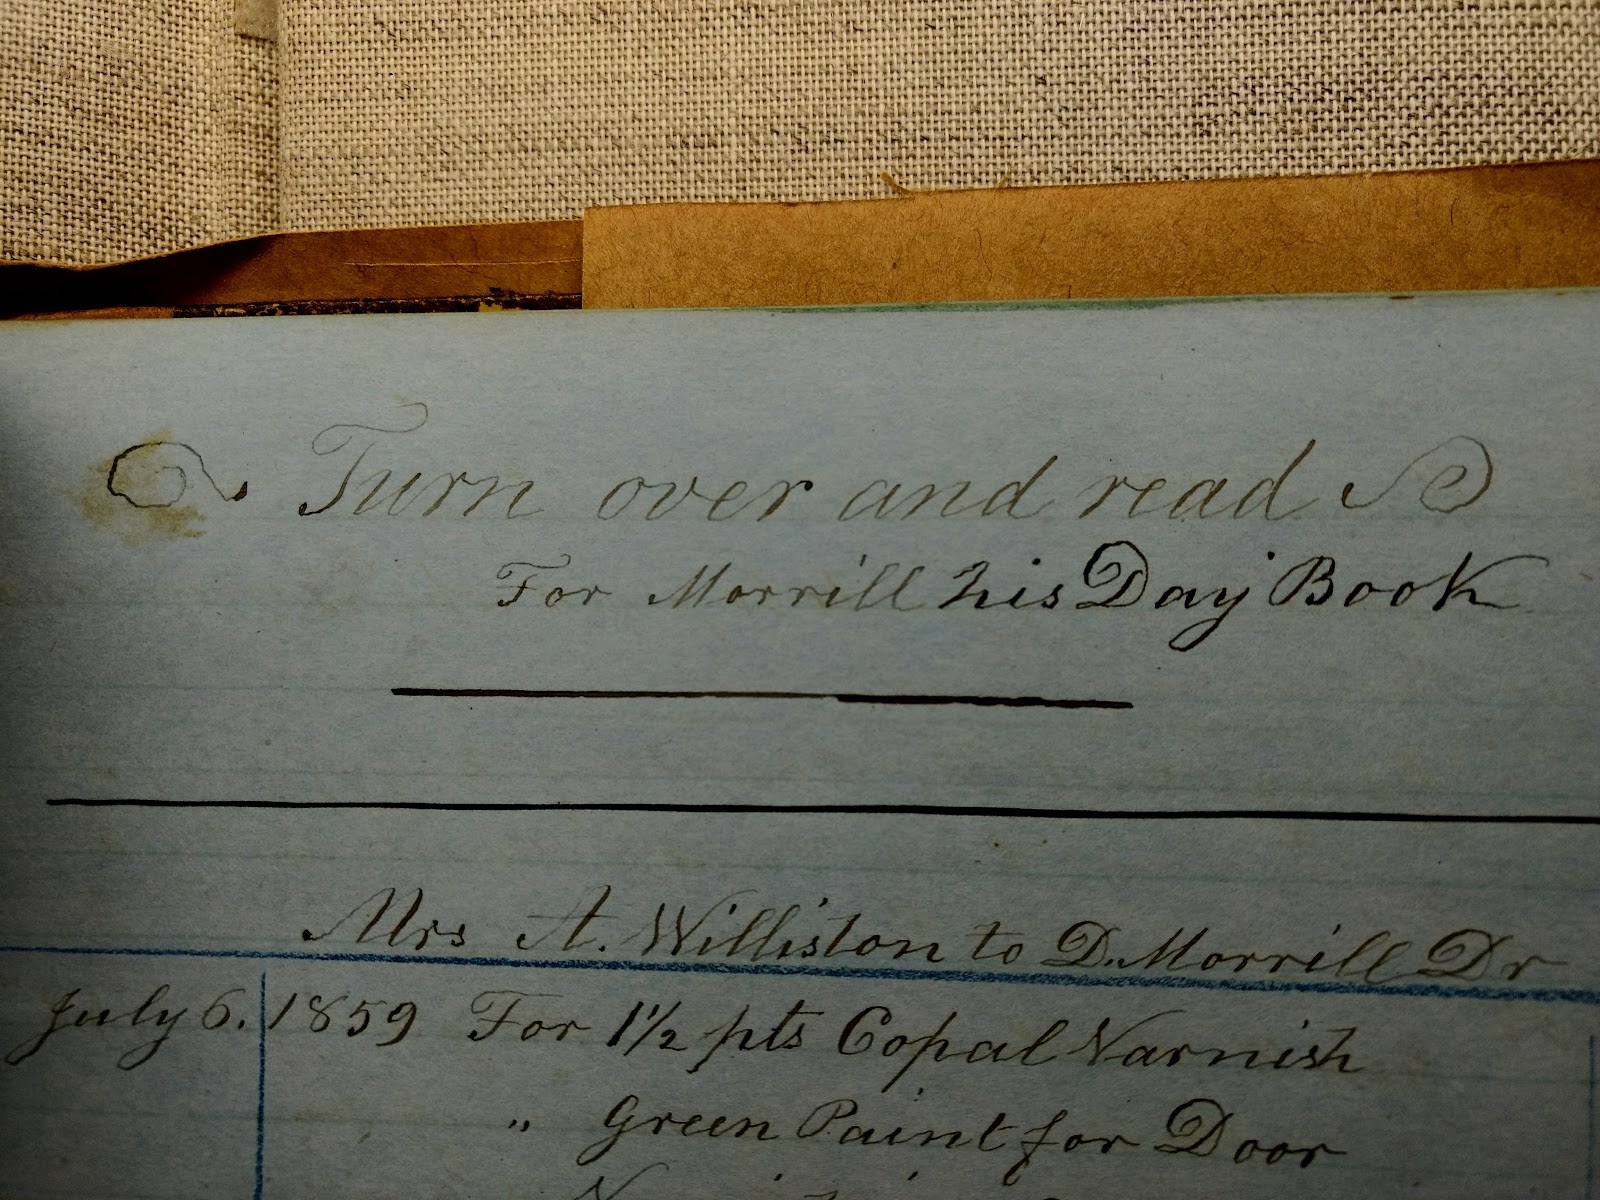 Turn over and read
For Morrill his Day Book
Mrs A. Williston to D. Morrill Dr
July 6. 1859 For 1½ pts Copal Varnish
" Green Paint for Door